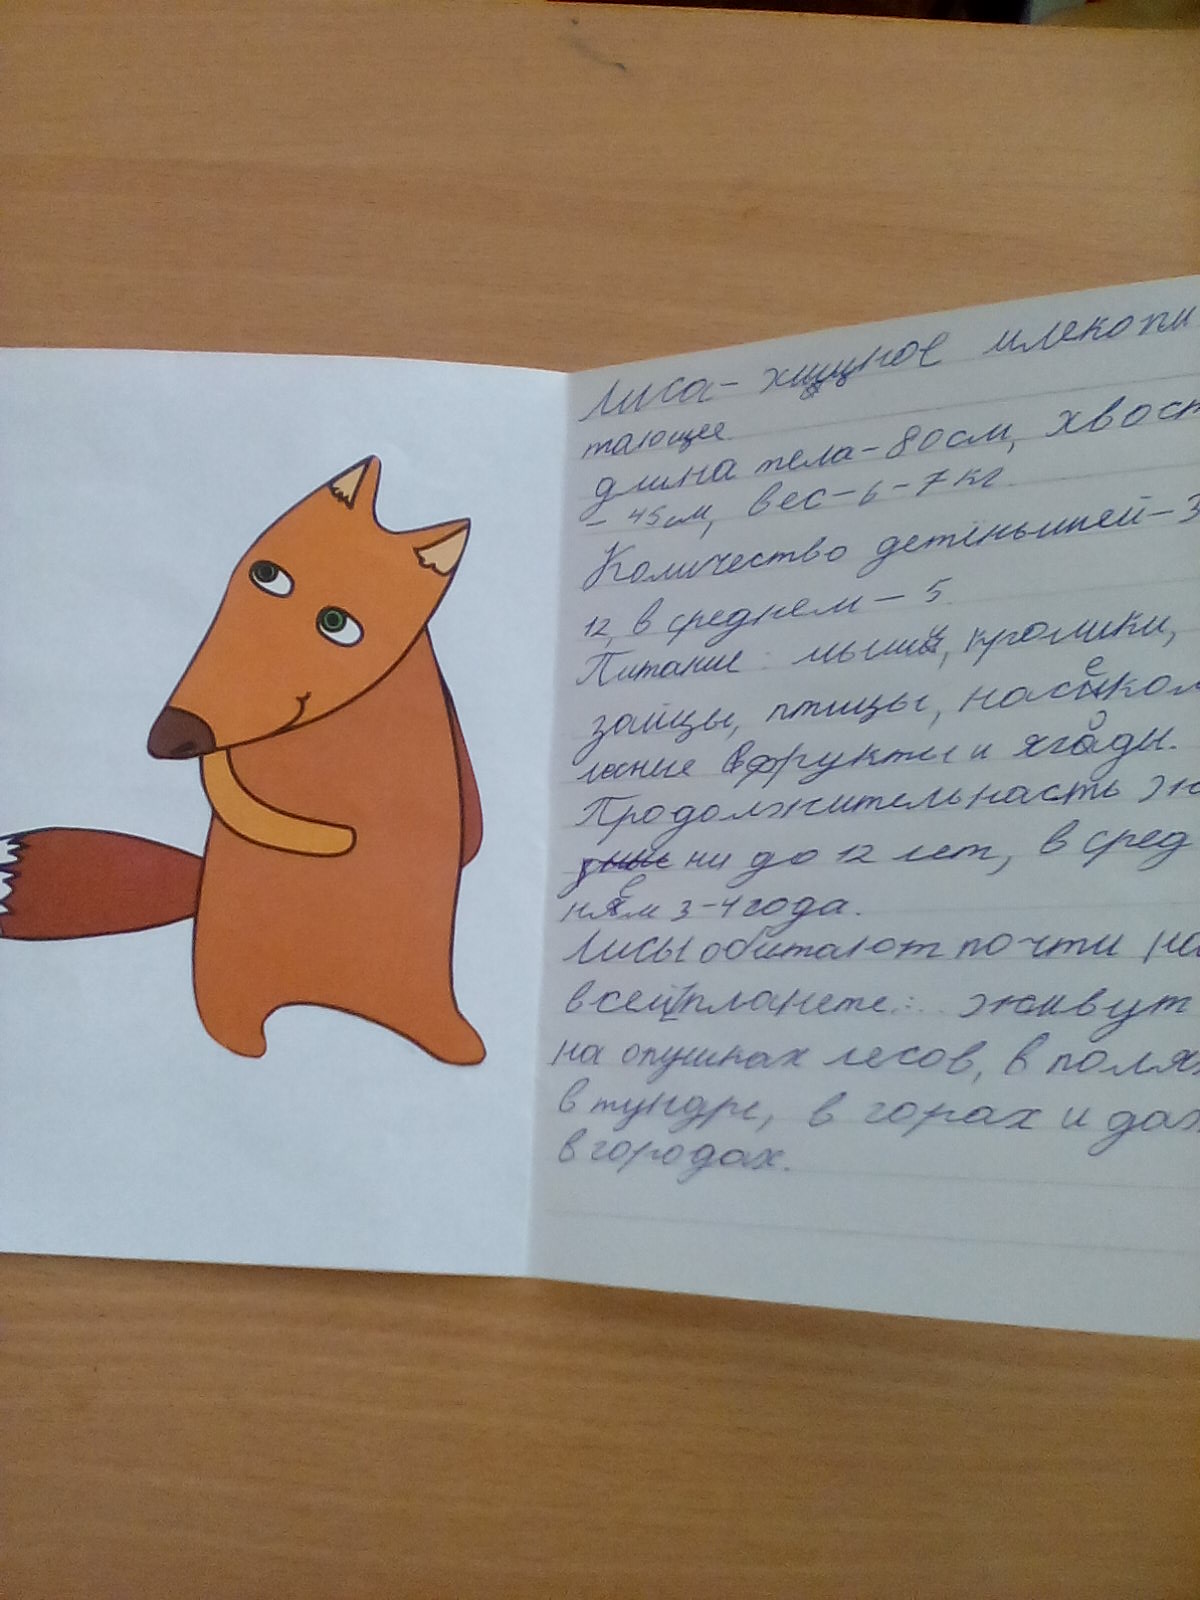 Лиса- хищное млекопи
тающее.
длина тела-80см, хвост
- 45см, вес-6-7кг.
Количество детёнышей-3
12, в среднем - 5.
Питание: мыши, кролики,
зайцы, птицы, насеком
мные фрукты и ягоды.
Продолжительнасть жи
ни до 12 лет, в сред
нем 3-4 года.
Лисы обитают почти на
всей планете: живут
на опушках лесов, в полях
в тундре, в горах и даж
в городах.